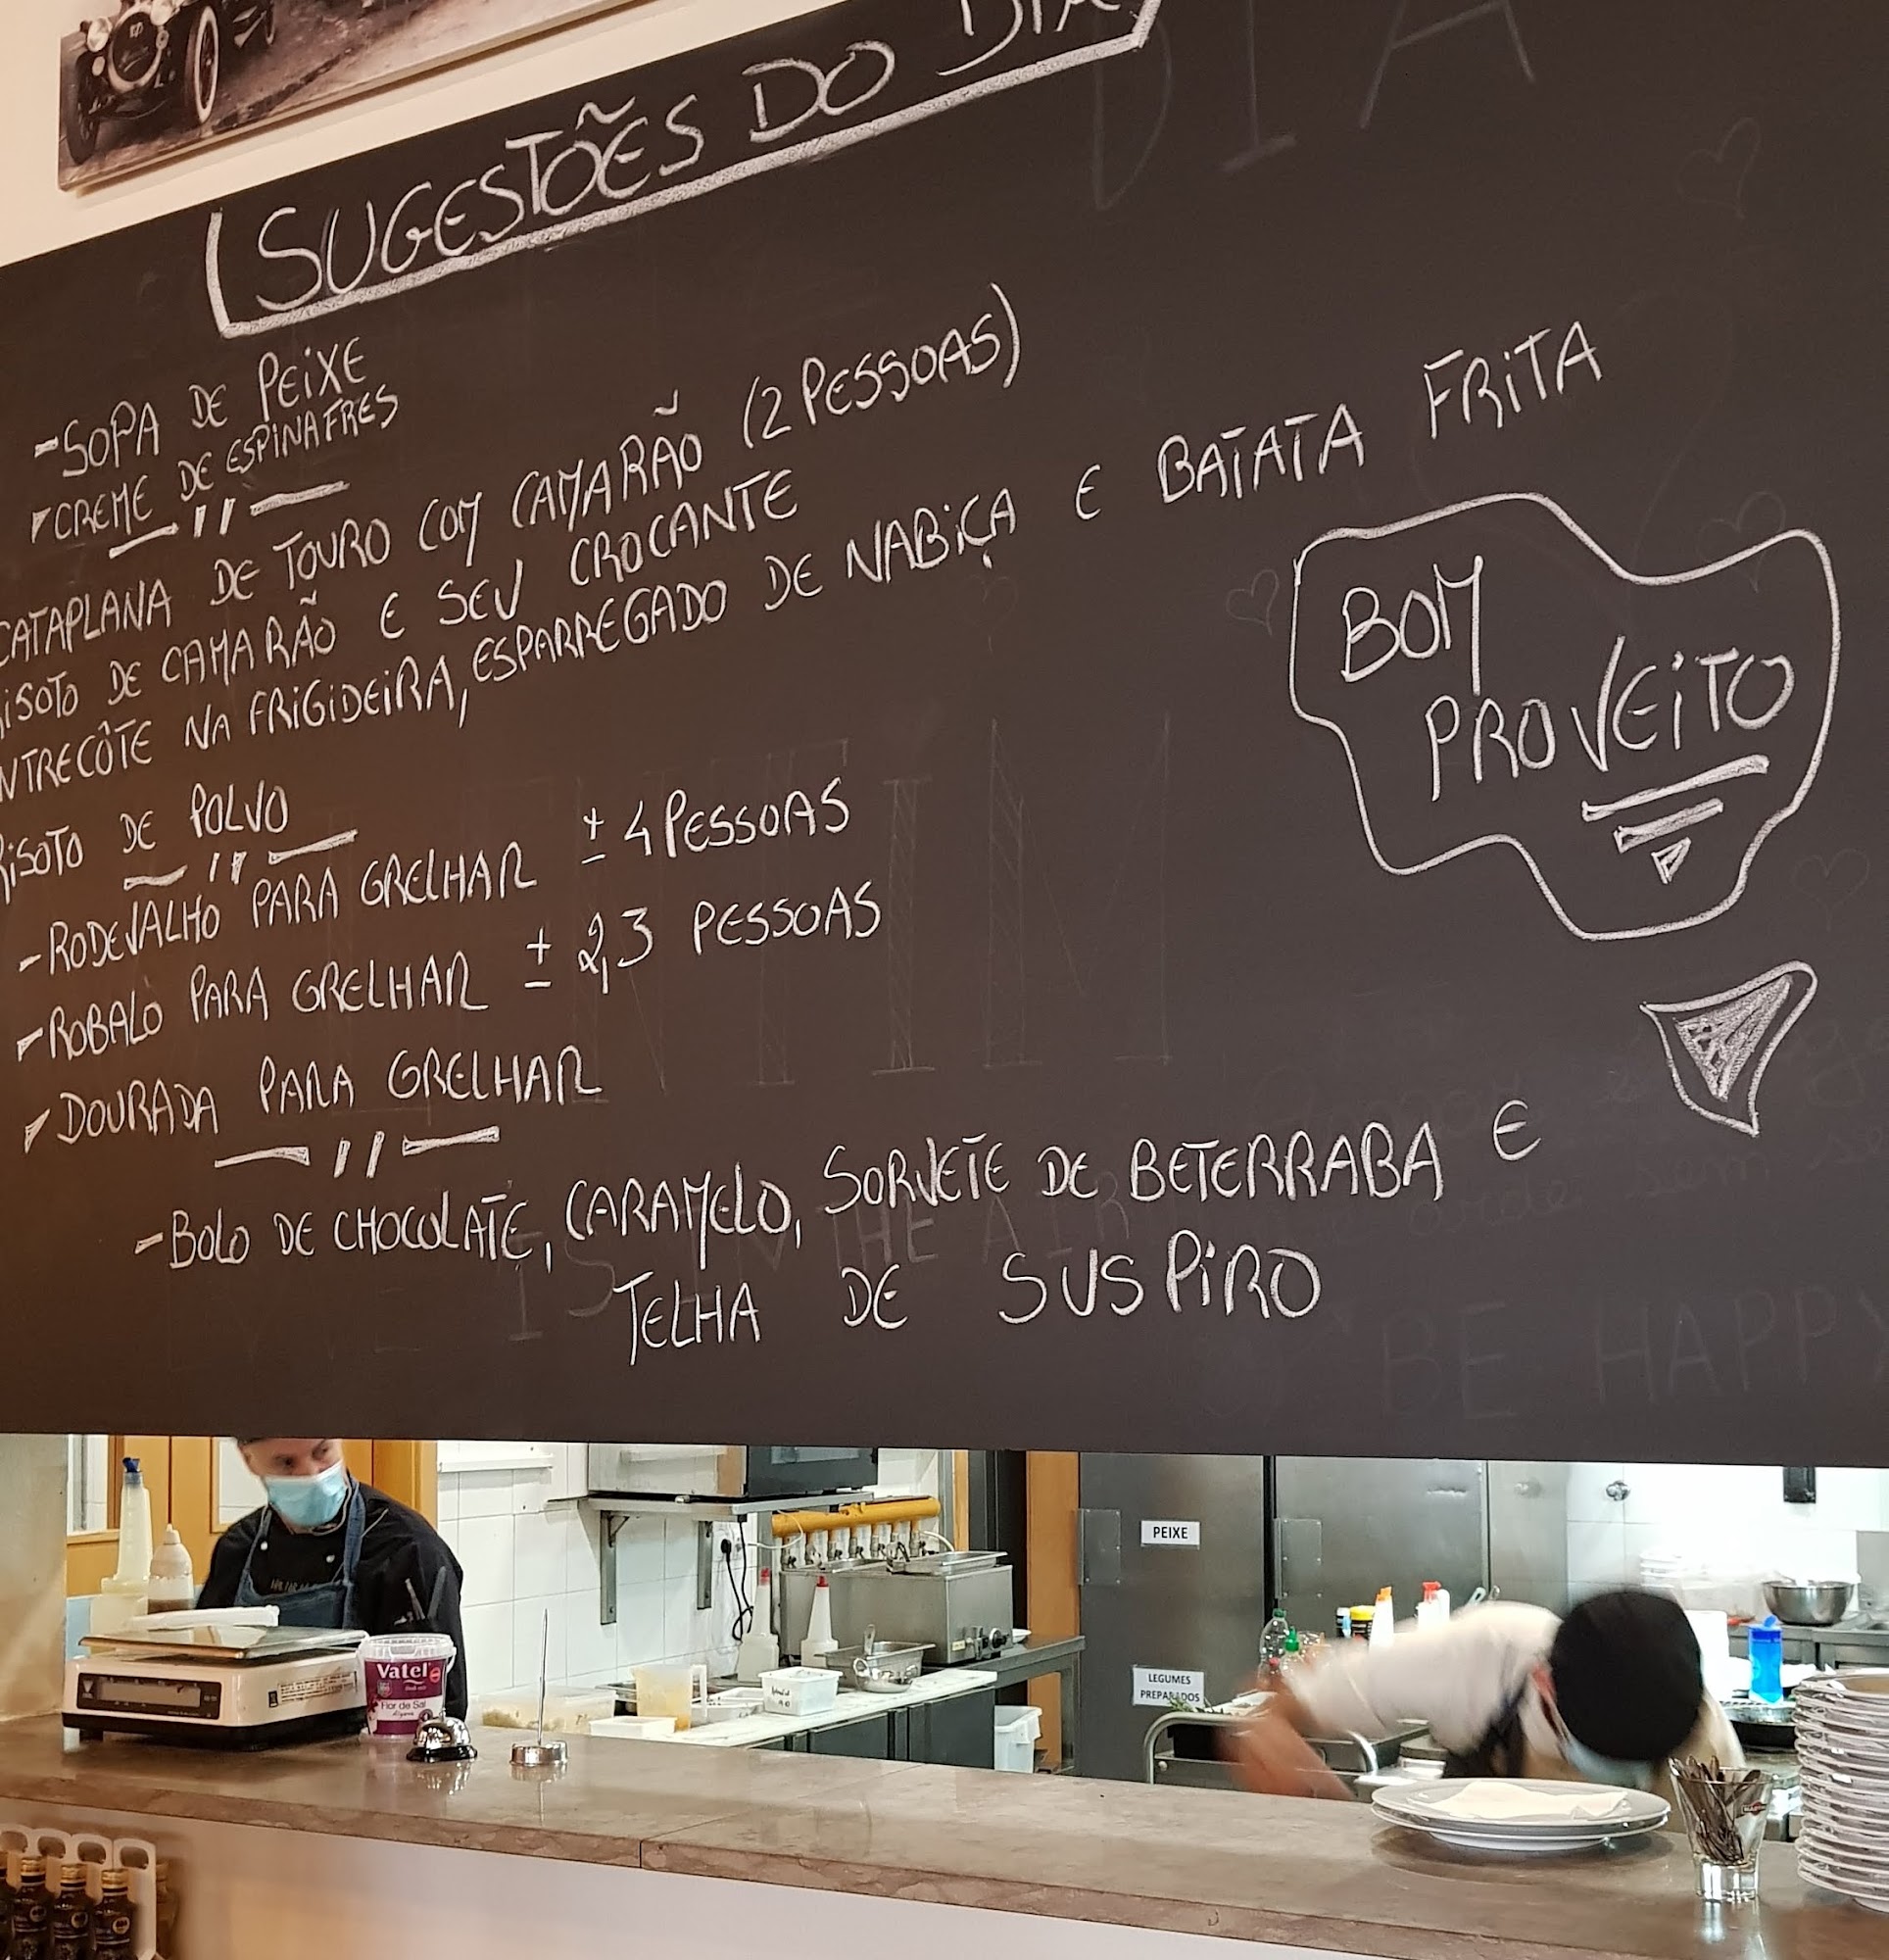 SUGESTÕES DO DIA
-SOPA DE PEIXE
-CREME DE ESPINAFRES
CATAPLANA DE TOURO COM CAMARÃO (2 PESSOAS)
RISOTO DE CAMARÃO E SEU CROCANTE
ENTRECÔTE NA FRIGIDEIRA, ESPARREGADO DE NABIÇA E BATATA FRITA
RISOTO DE POLVO
-RODEVALHO PARA GRELHAR ± 4 PESSOAS
-ROBALO PARA GRELHAR ± 2,3 PESSOAS
-DOURADA PARA GRELHAR
-BOLO DE CHOCOLATE, CARAMELO, SORVETE DE BETERRABA E
TELHA DE SUSPIRO
BOM
PROVEITO
DIA
IS IN THE AIR
BE HAPPY
PEIXE
LEGUMES
PREPARADOS
Vatel
Flor de Sal